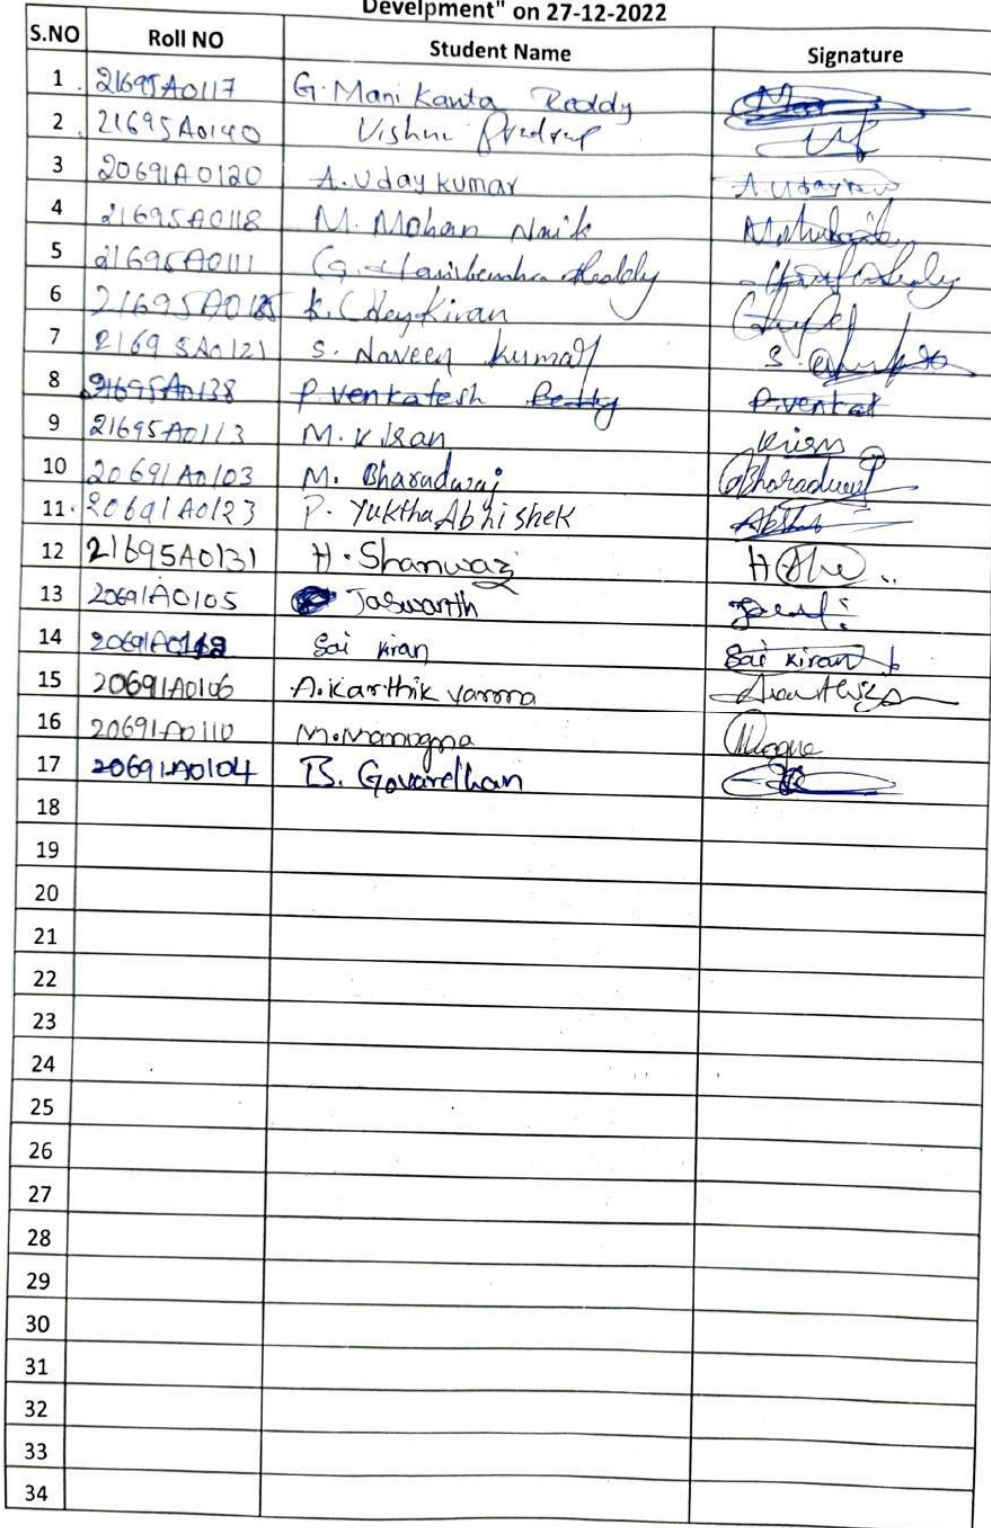 Develpment" on 27-12-2022
S.NO Roll NO Student Name Signature
1 21695A0117 G. Mani Kanta Reddy
2 21695A0140 Vishnu
3 20691A0120 A. Uday kumar A. Uday
4 21695A0118 M. Mohan Naik
5 21695A0111 G. Reddy
6 K. Udey Kiran
7 21695A0121 S. Naveen kumar S.
8 21695A0138 P. venkatesh Reddy P. venkat
9 21695A0113 M. Kiran Kiran
10 20691A0103 M. Bharadwaj Bharadwaj
11. 20691A0123 P. Yuktha Abhishek
12 21695A0131 H. Shanwaz H
13 20691A0105 Jaswanth
14 Sai kiran Sai kiran
15 20691A0106 A. Karthik varma
16 20691A0110 M. Manogna
17 20691A0104 B. Govardhan
18
19
20
21
22
23
24
25
26
27
28
29
30
31
32
33
34